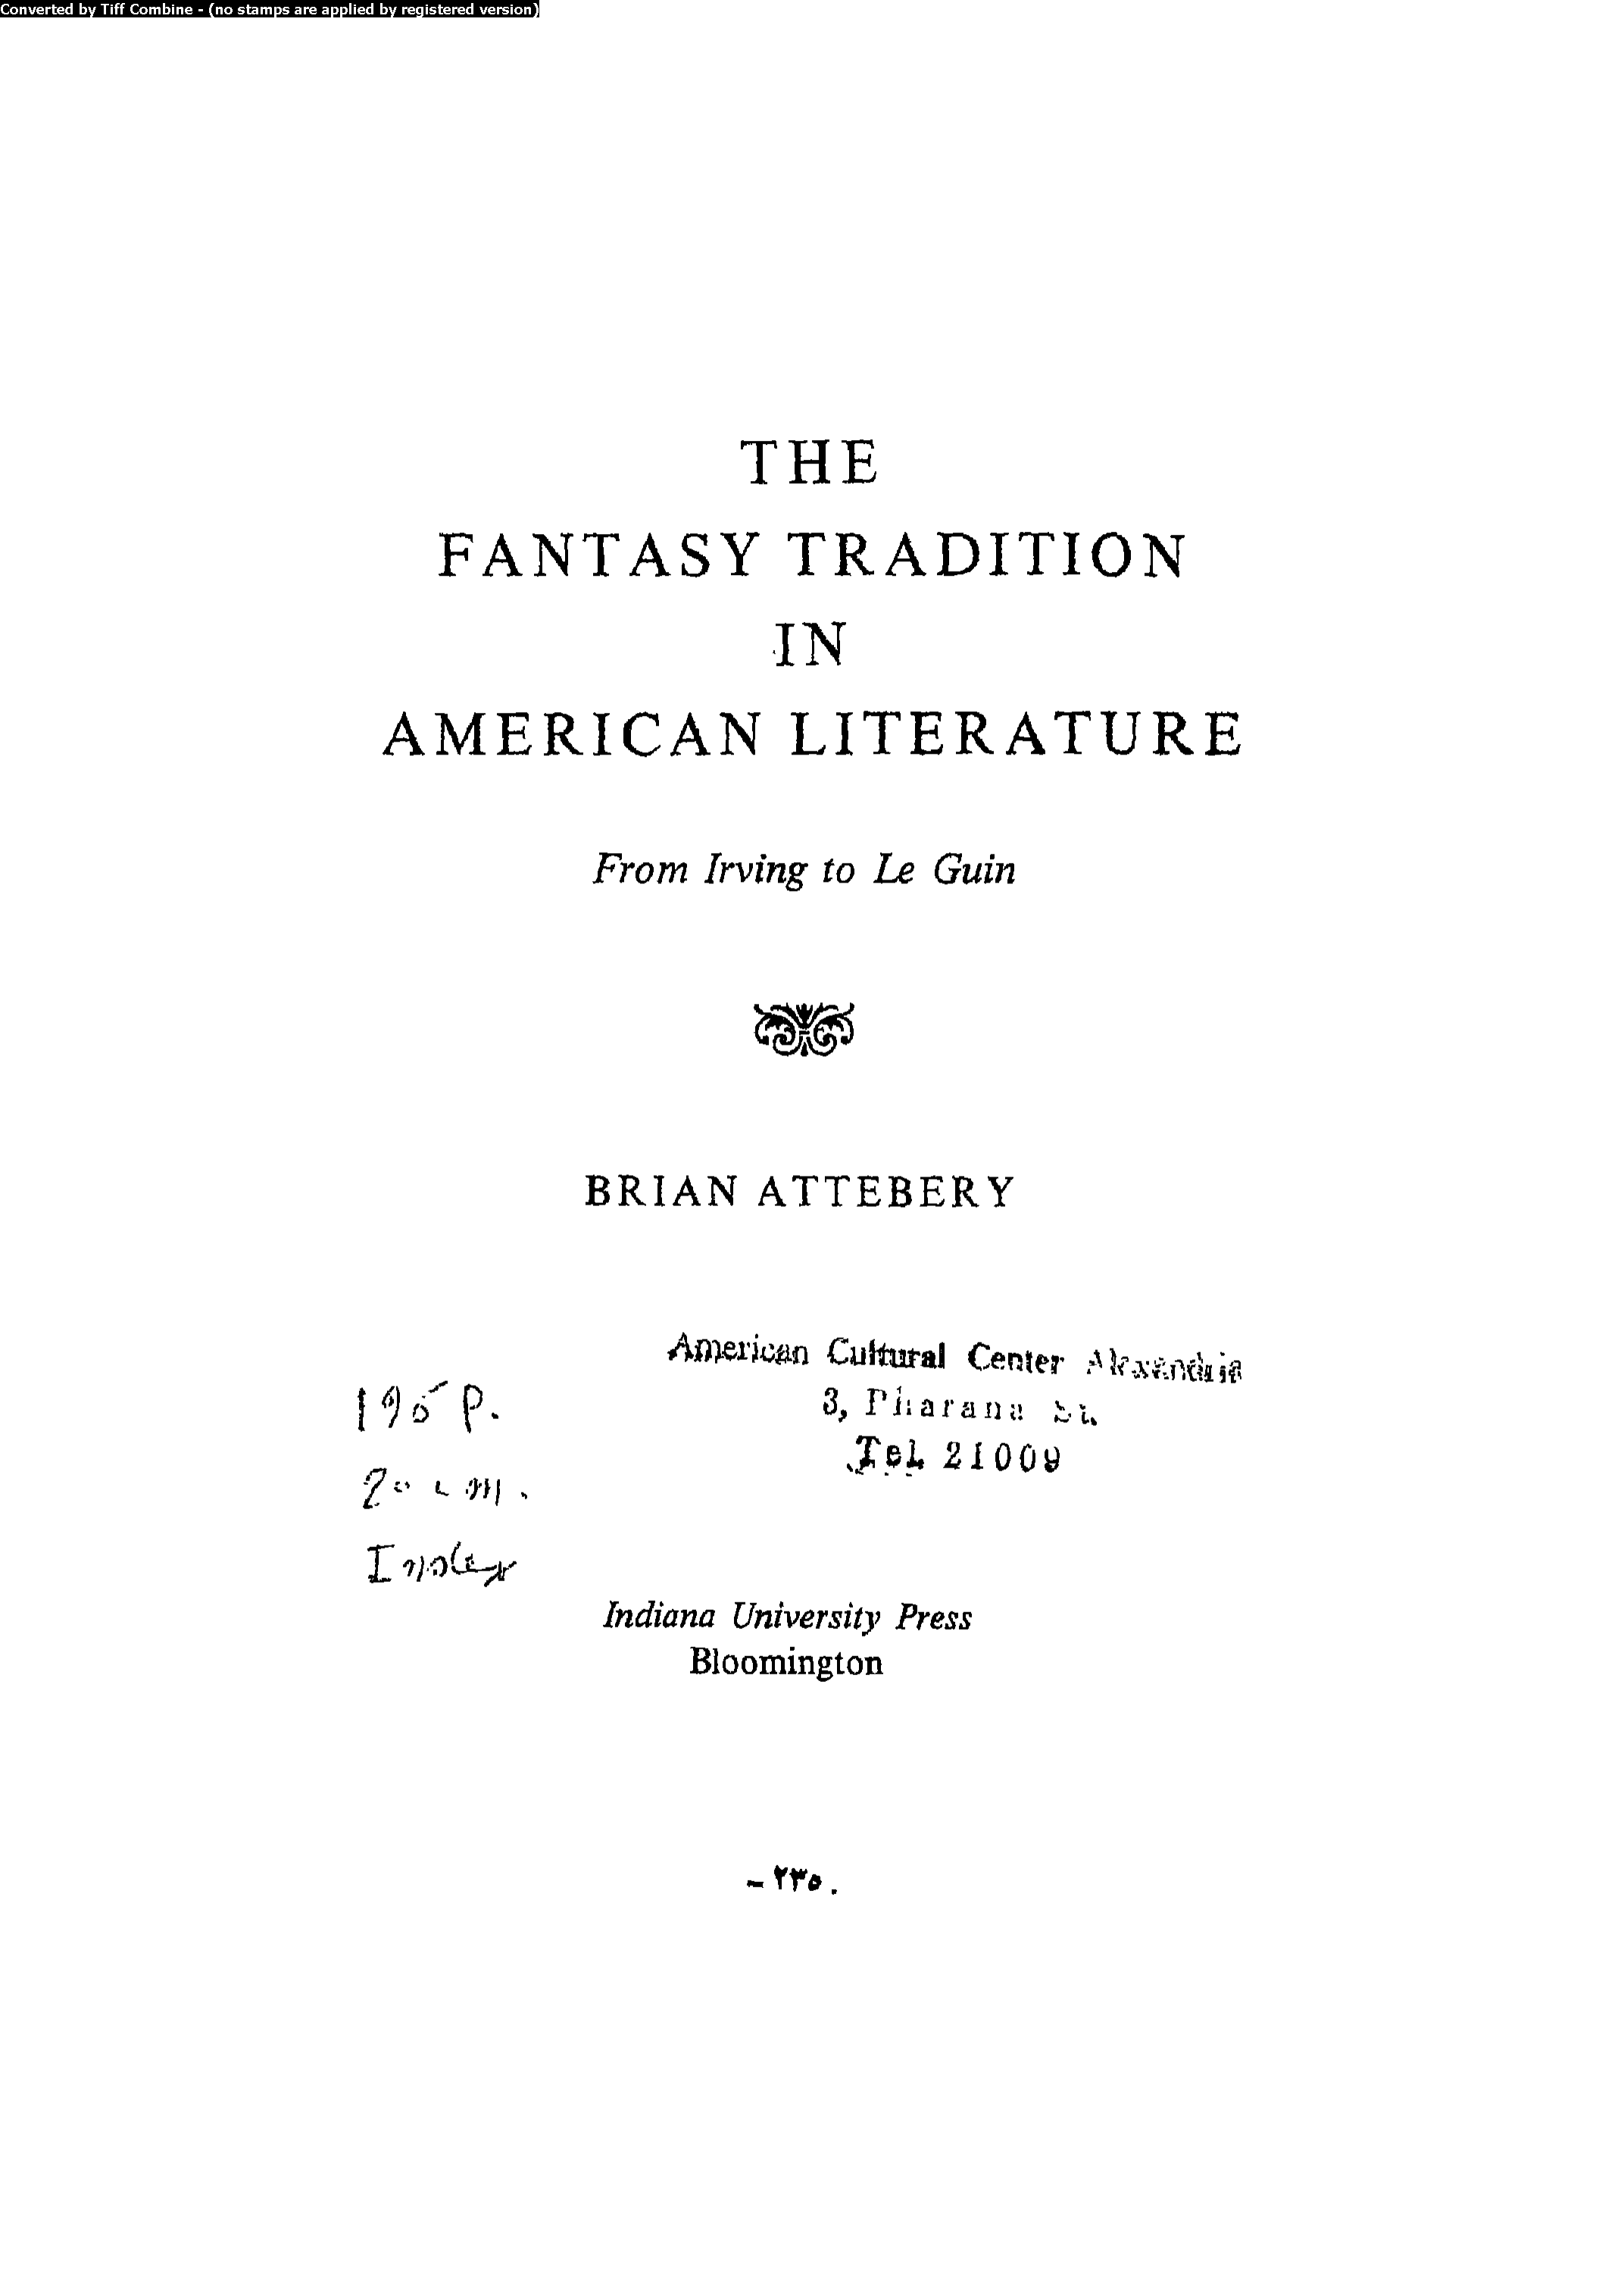 Converted by Tiff Combine - (no stamps are applied by registered version)
THE
FANTASY TRADITION
IN
AMERICAN LITERATURE
From Irving to Le Guin
BRIAN ATTEBERY
American Cultural Center Alexandria
3, Pharana St.
Tel. 21009
195 P.
20 cm.
Index
Indiana University Press
Bloomington
- ٢٣٥ .